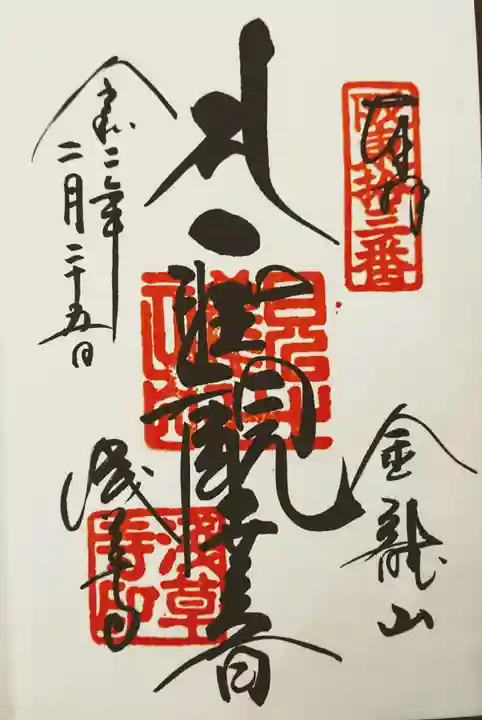 奉拝
阪東拾三番
金龍山
聖観世音
浅草寺
浅草
寺印
令和二年
二月二十五日